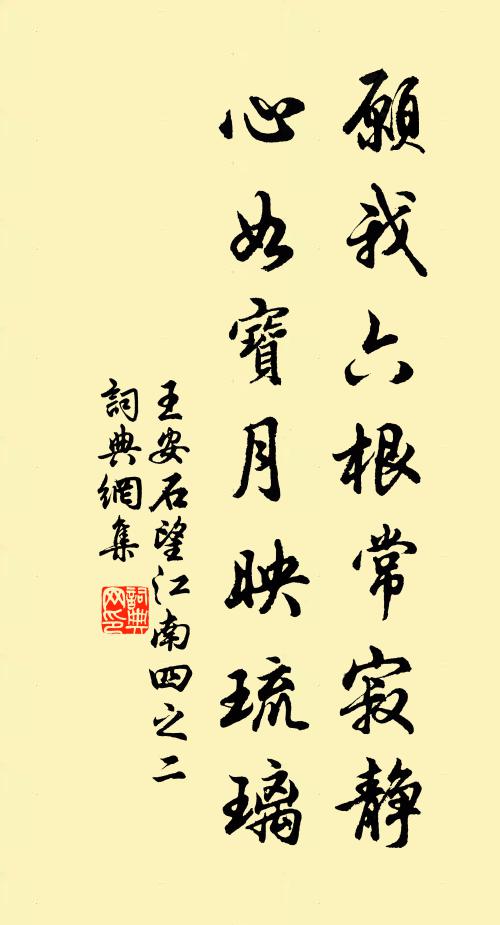 願我六根常寂靜
心如寶月映琉璃
王安石望江南四之二
詞典網集
詞典
网印